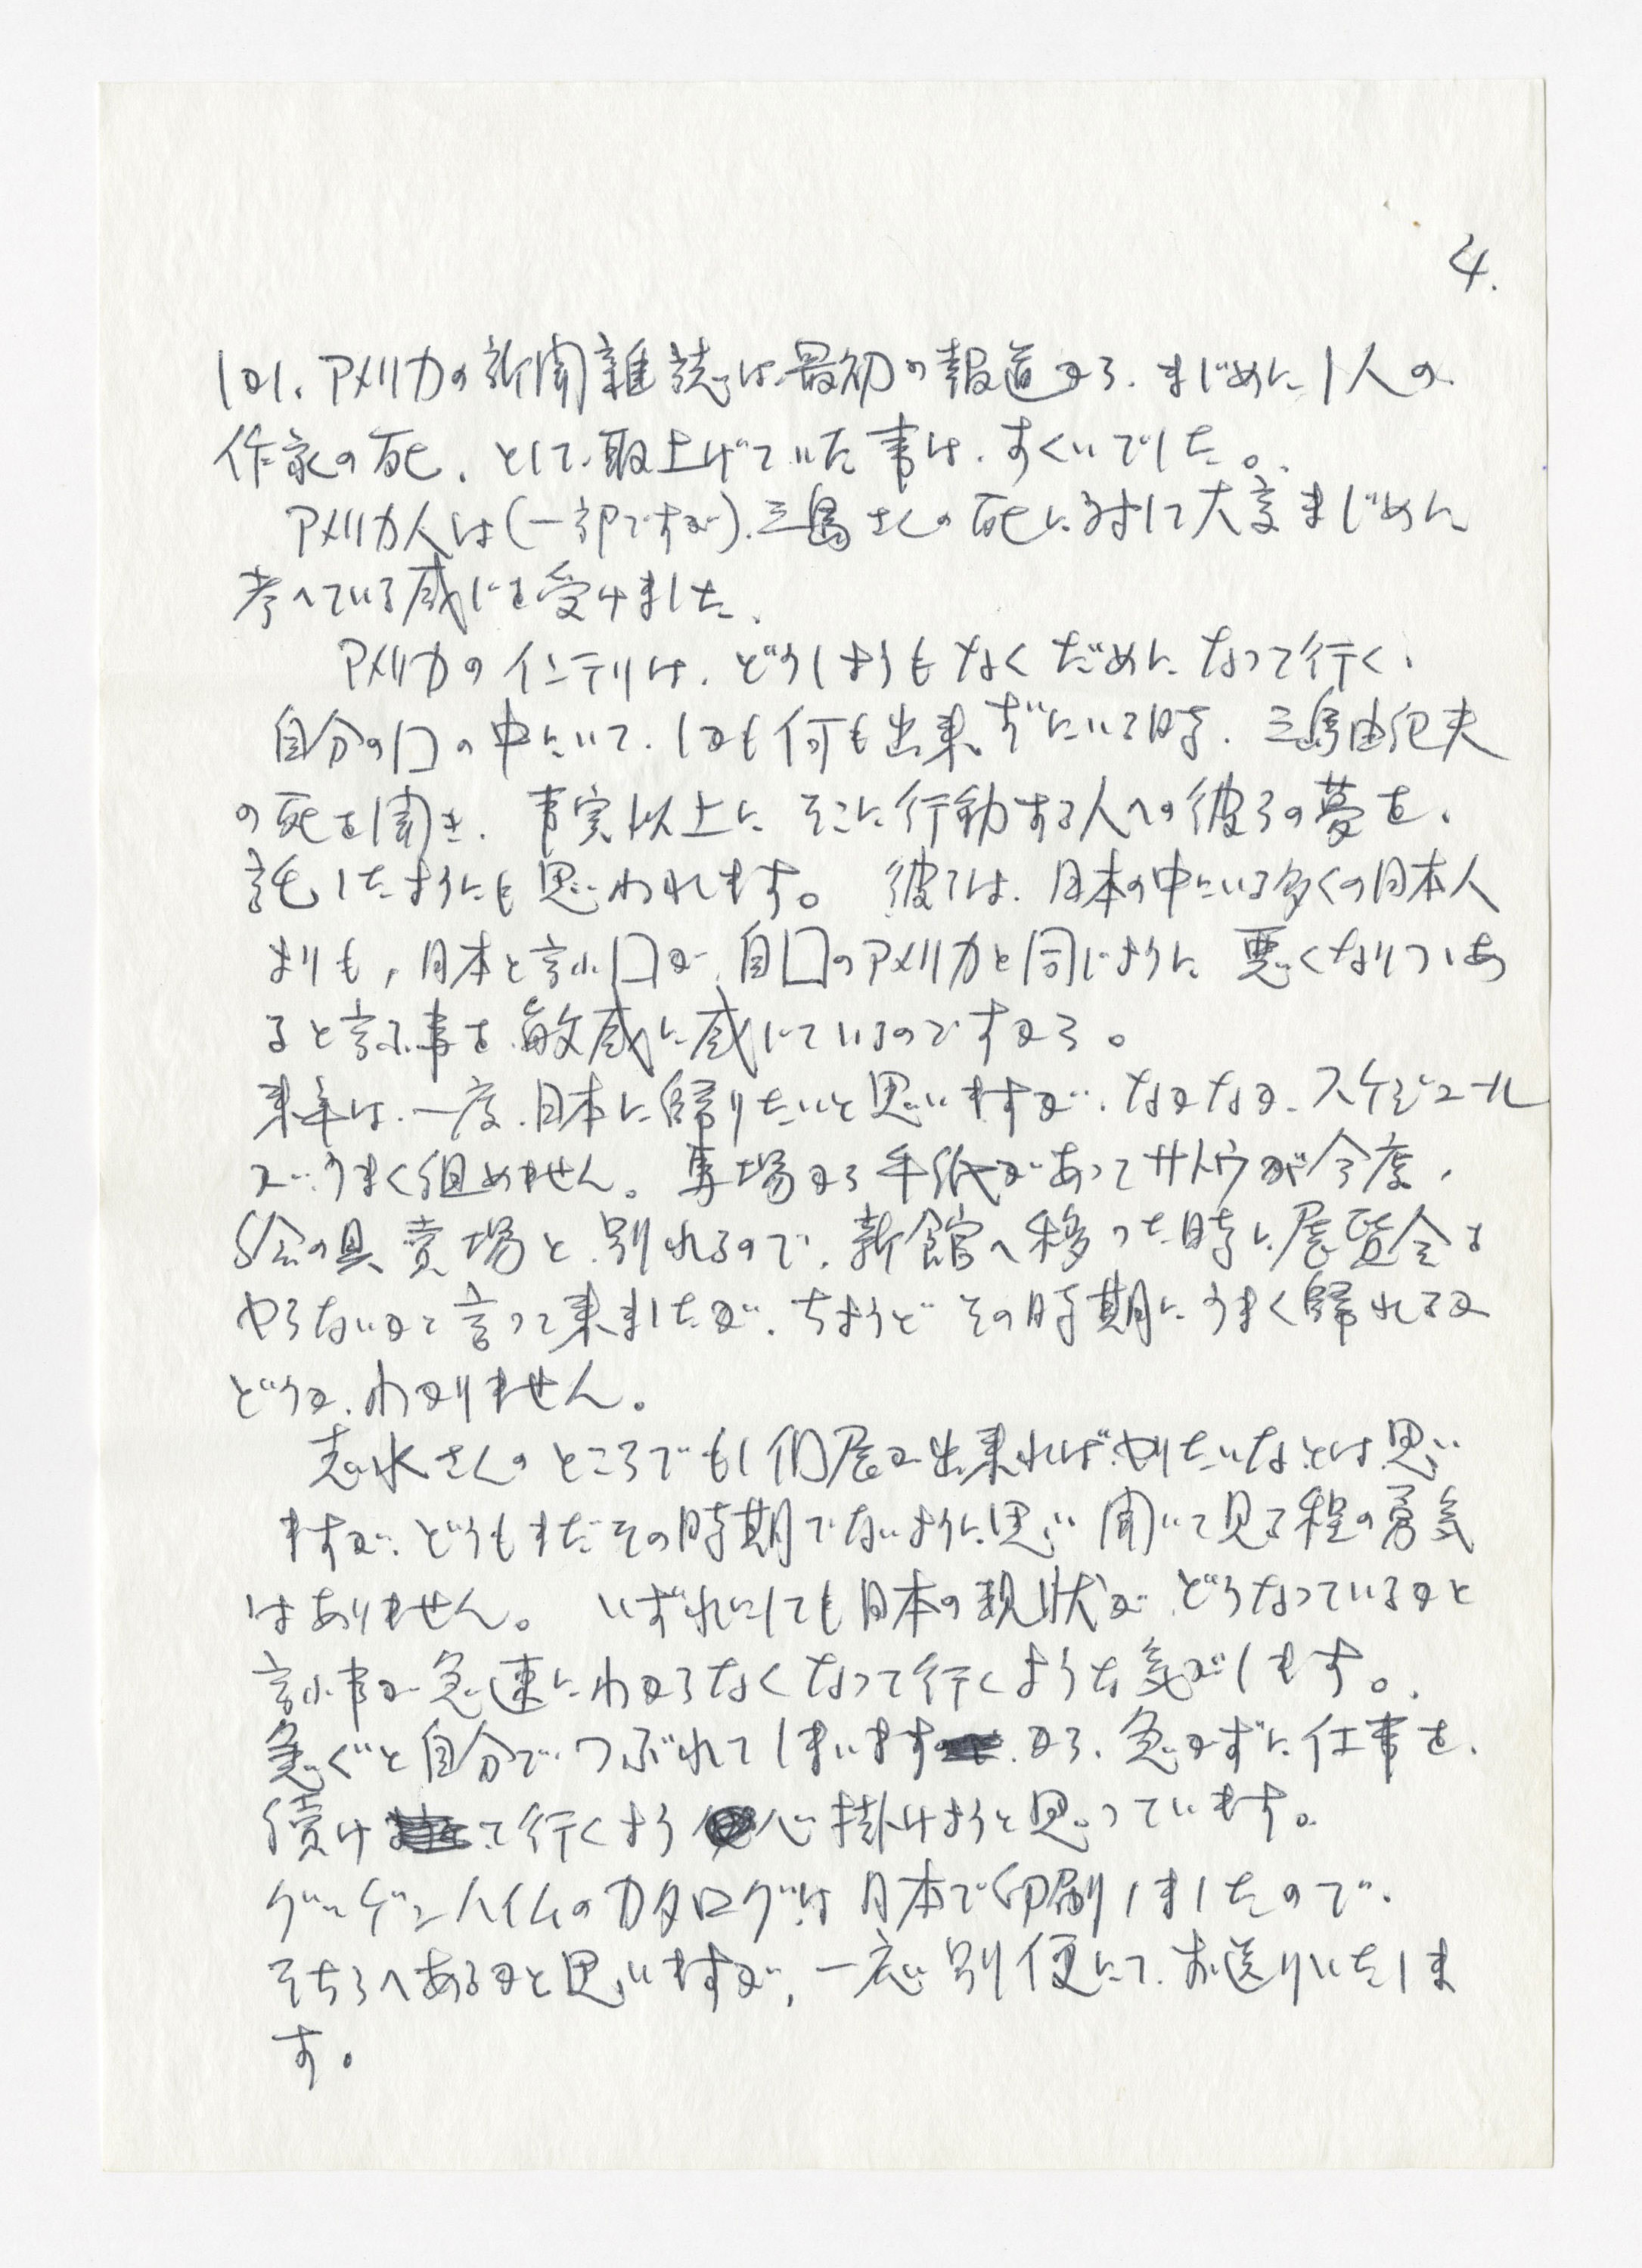 4.
しかし、アメリカの新聞雑誌は最初の報道から、まじめに1人の
作家の死、として取上げていた事は、すくいでした。
アメリカ人は(一部ですが)、三島さんの死に対して大変まじめに
考へている感じを受けました。
アメリカのインテリは、どうしようもなくだめになって行く、
自分の口の中にいて、しかも何も出来ずにいる時、三島由紀夫
の死を聞き、事実以上にそこに行動する人への彼らの夢を、
託したようにも思われます。 彼らは、日本の中にいる多くの日本人
よりも、日本と言ふ口が、自口のアメリカと同じように悪くなりつゝあ
ると言ふ事を敏感に感じているのですから。
来年は、一度、日本に帰りたいと思いますが、なかなか、スケジュール
が、うまく組めません。馬場から手紙があってサトウが今度、
絵の具売場と、別れるので、新館へ移った時に展覧会を
やらないかと言って来ましたが、ちょうどその時期にうまく帰れるか
どうか、わかりません。
志水さんのところでもし個展が出来ればやりたいなとは思い
ますが、どうもまだその時期でないように思い聞いて見る程の勇気
はありません。 いずれにしても日本の現状が、どうなっているかと
言ふ事が急速にわからなくなって行くような気がします。
急ぐと自分で、つぶれてしまいますから、急がずに仕事を、
続けて行くよう心掛けようと思っています。
グッゲンハイムのカタログは日本で印刷しましたので、
そちらへあるかと思いますが、一応別便にて、お送りいたしま
す。